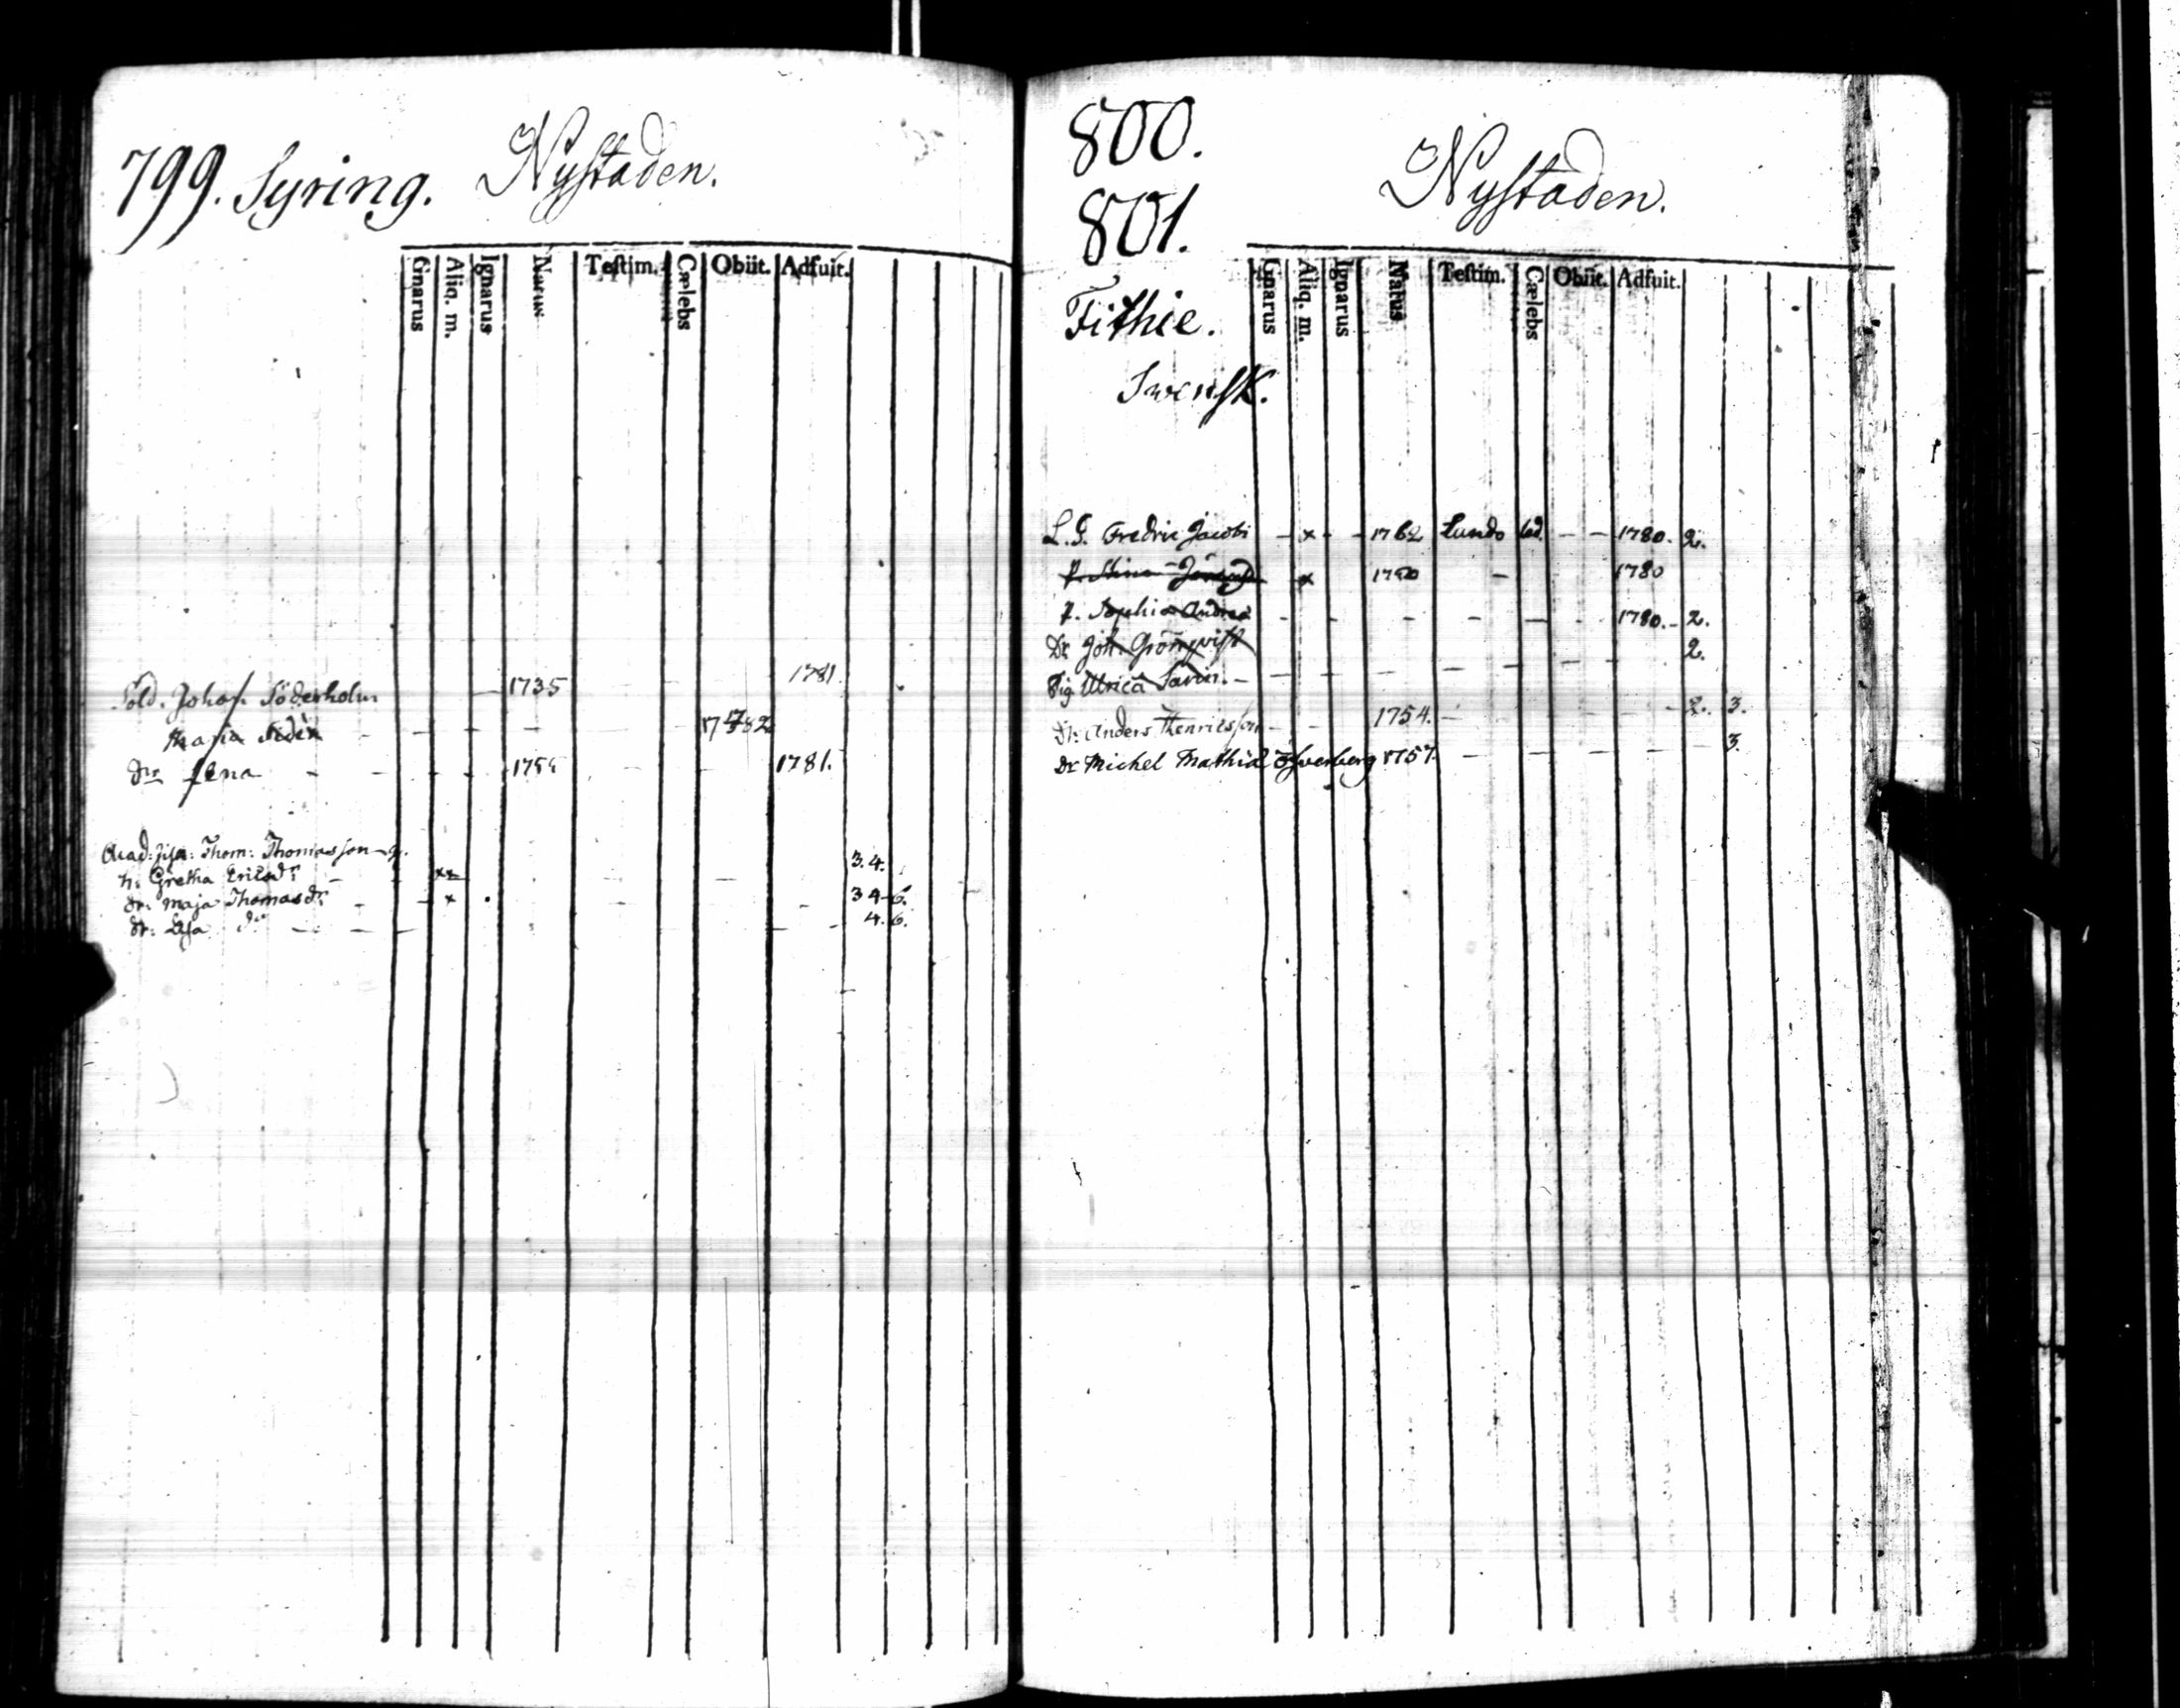 799. Syring. Nystaden.
Gnarus Aliq. m. Ignarus Natus Testim. Cælebs Obiit. Adfuit.
Sold. Johaf. Söderholm 1735 1781.
Maria 1782
dr Lena 1781.
Acad: Thom: Thomasson 3.4.
h. Gretha Ericsdr xx
dr: Maja Thomasdr x 3 4 6.
dr: Lisa dr 4. 6.
800. Nystaden.
801.
Fithie.
Swensk.
Gnarus Aliq. m. Ignarus Natus Testim. Cælebs Obiit. Adfuit.
L. G. Fredric Jacobi x 1762 Lundo 1780. 2.
P. Stina x 1780
P. Sophia Andrea 1780. 2.
Dr Joh. Grönqvist 2.
Pig Ulrica
Dr: Anders Henricsson 1754. 2. 3.
Dr Michel Mathia 1757. 3.